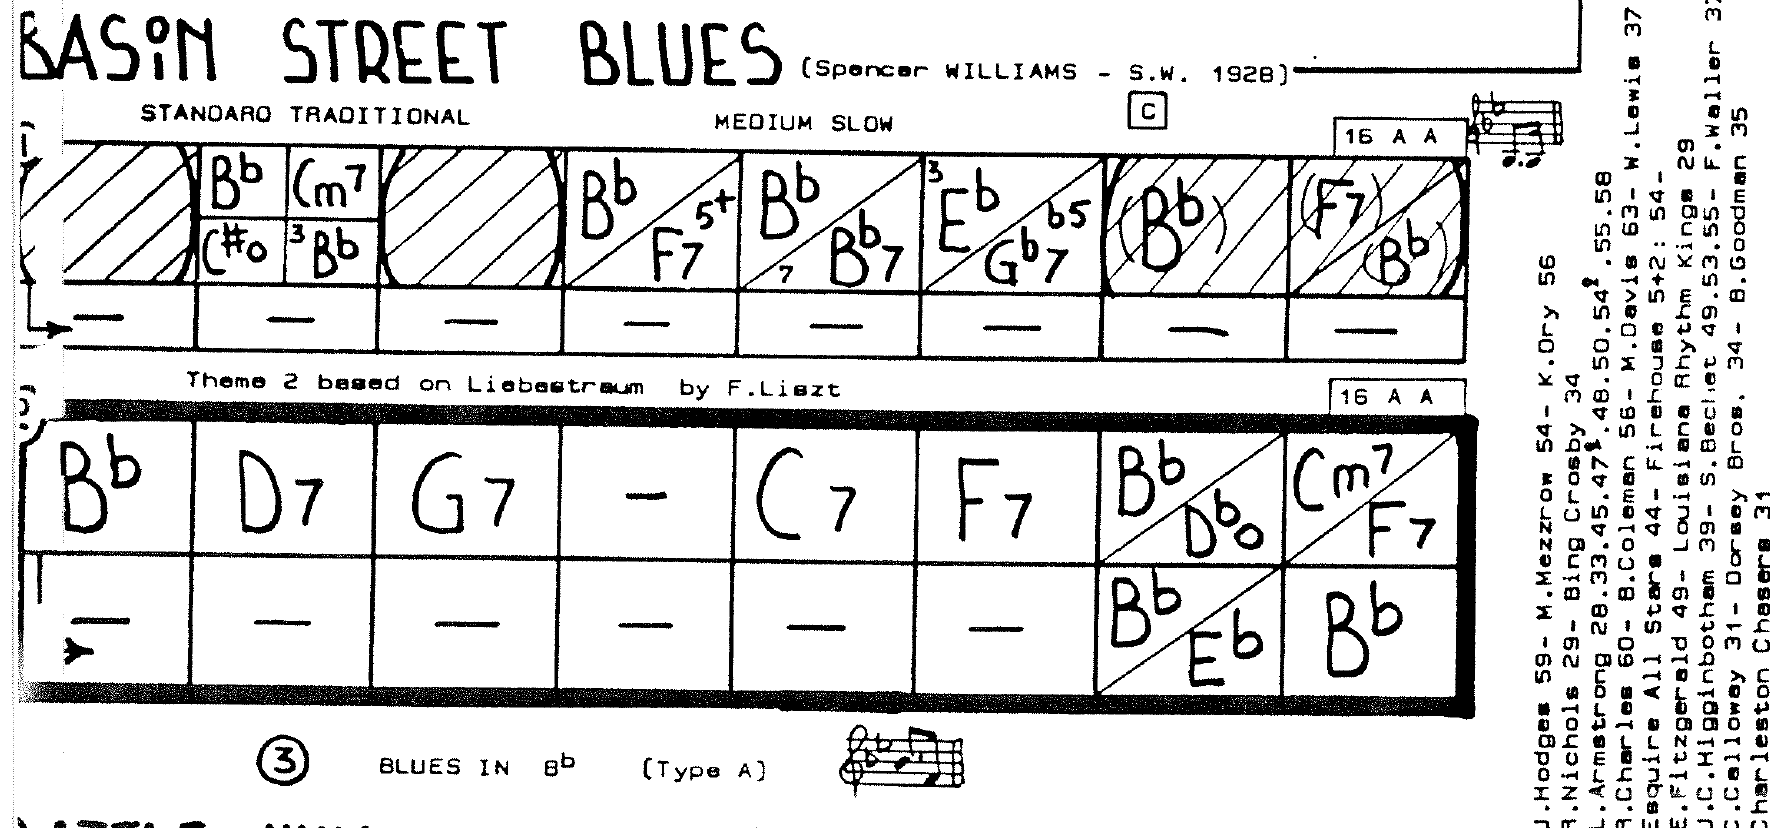 BASiN STREET BLUES (Spencer WILLIAMS - S.W. 1928)
STANDARD TRADITIONAL MEDIUM SLOW C 16 A A
Bb Cm7 Bb F7 5+ Bb 3 Eb b5 (Bb) (F7)
C#o 3 Bb 7 Bb7 Gb7 (Bb)
— — — — — — — —
Theme 2 based on Liebestraum by F.Liszt 16 A A
Bb D7 G7 — C7 F7 Bb Dbo Cm7 F7
— — — — — — Bb Eb Bb
3 BLUES IN Bb (Type A)
J.Hodges 59- M.Mezzrow 54- K.Ory 56
R.Nichols 29- Bing Crosby 34
L.Armstrong 28.33.45.47 .48.50.54 .55.58
R.Charles 60- B.Coleman 56- M.Davis 63- W.Lewis 37
Esquire All Stars 44- Firehouse 5+2: 54-
E.Fitzgerald 49- Louisiana Rhythm Kings 29
J.C.Higginbotham 39- S.Bechet 49.53.55- F.Waller
C.Calloway 31- Dorsey Bros. 34- B.Goodman 35
Charleston Chasers 31